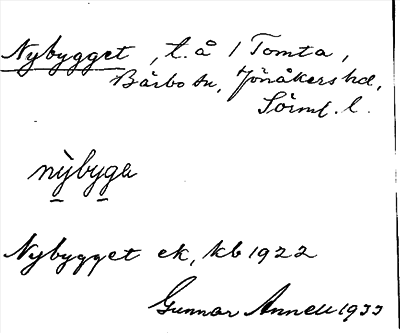 Nybygget, t. å 1 Tomta,
Bärbo sn, Jönåkers hd,
Sörml. l.
nỳbyga
Nybygget ek, kb 1922
Gunnar Annell 1933